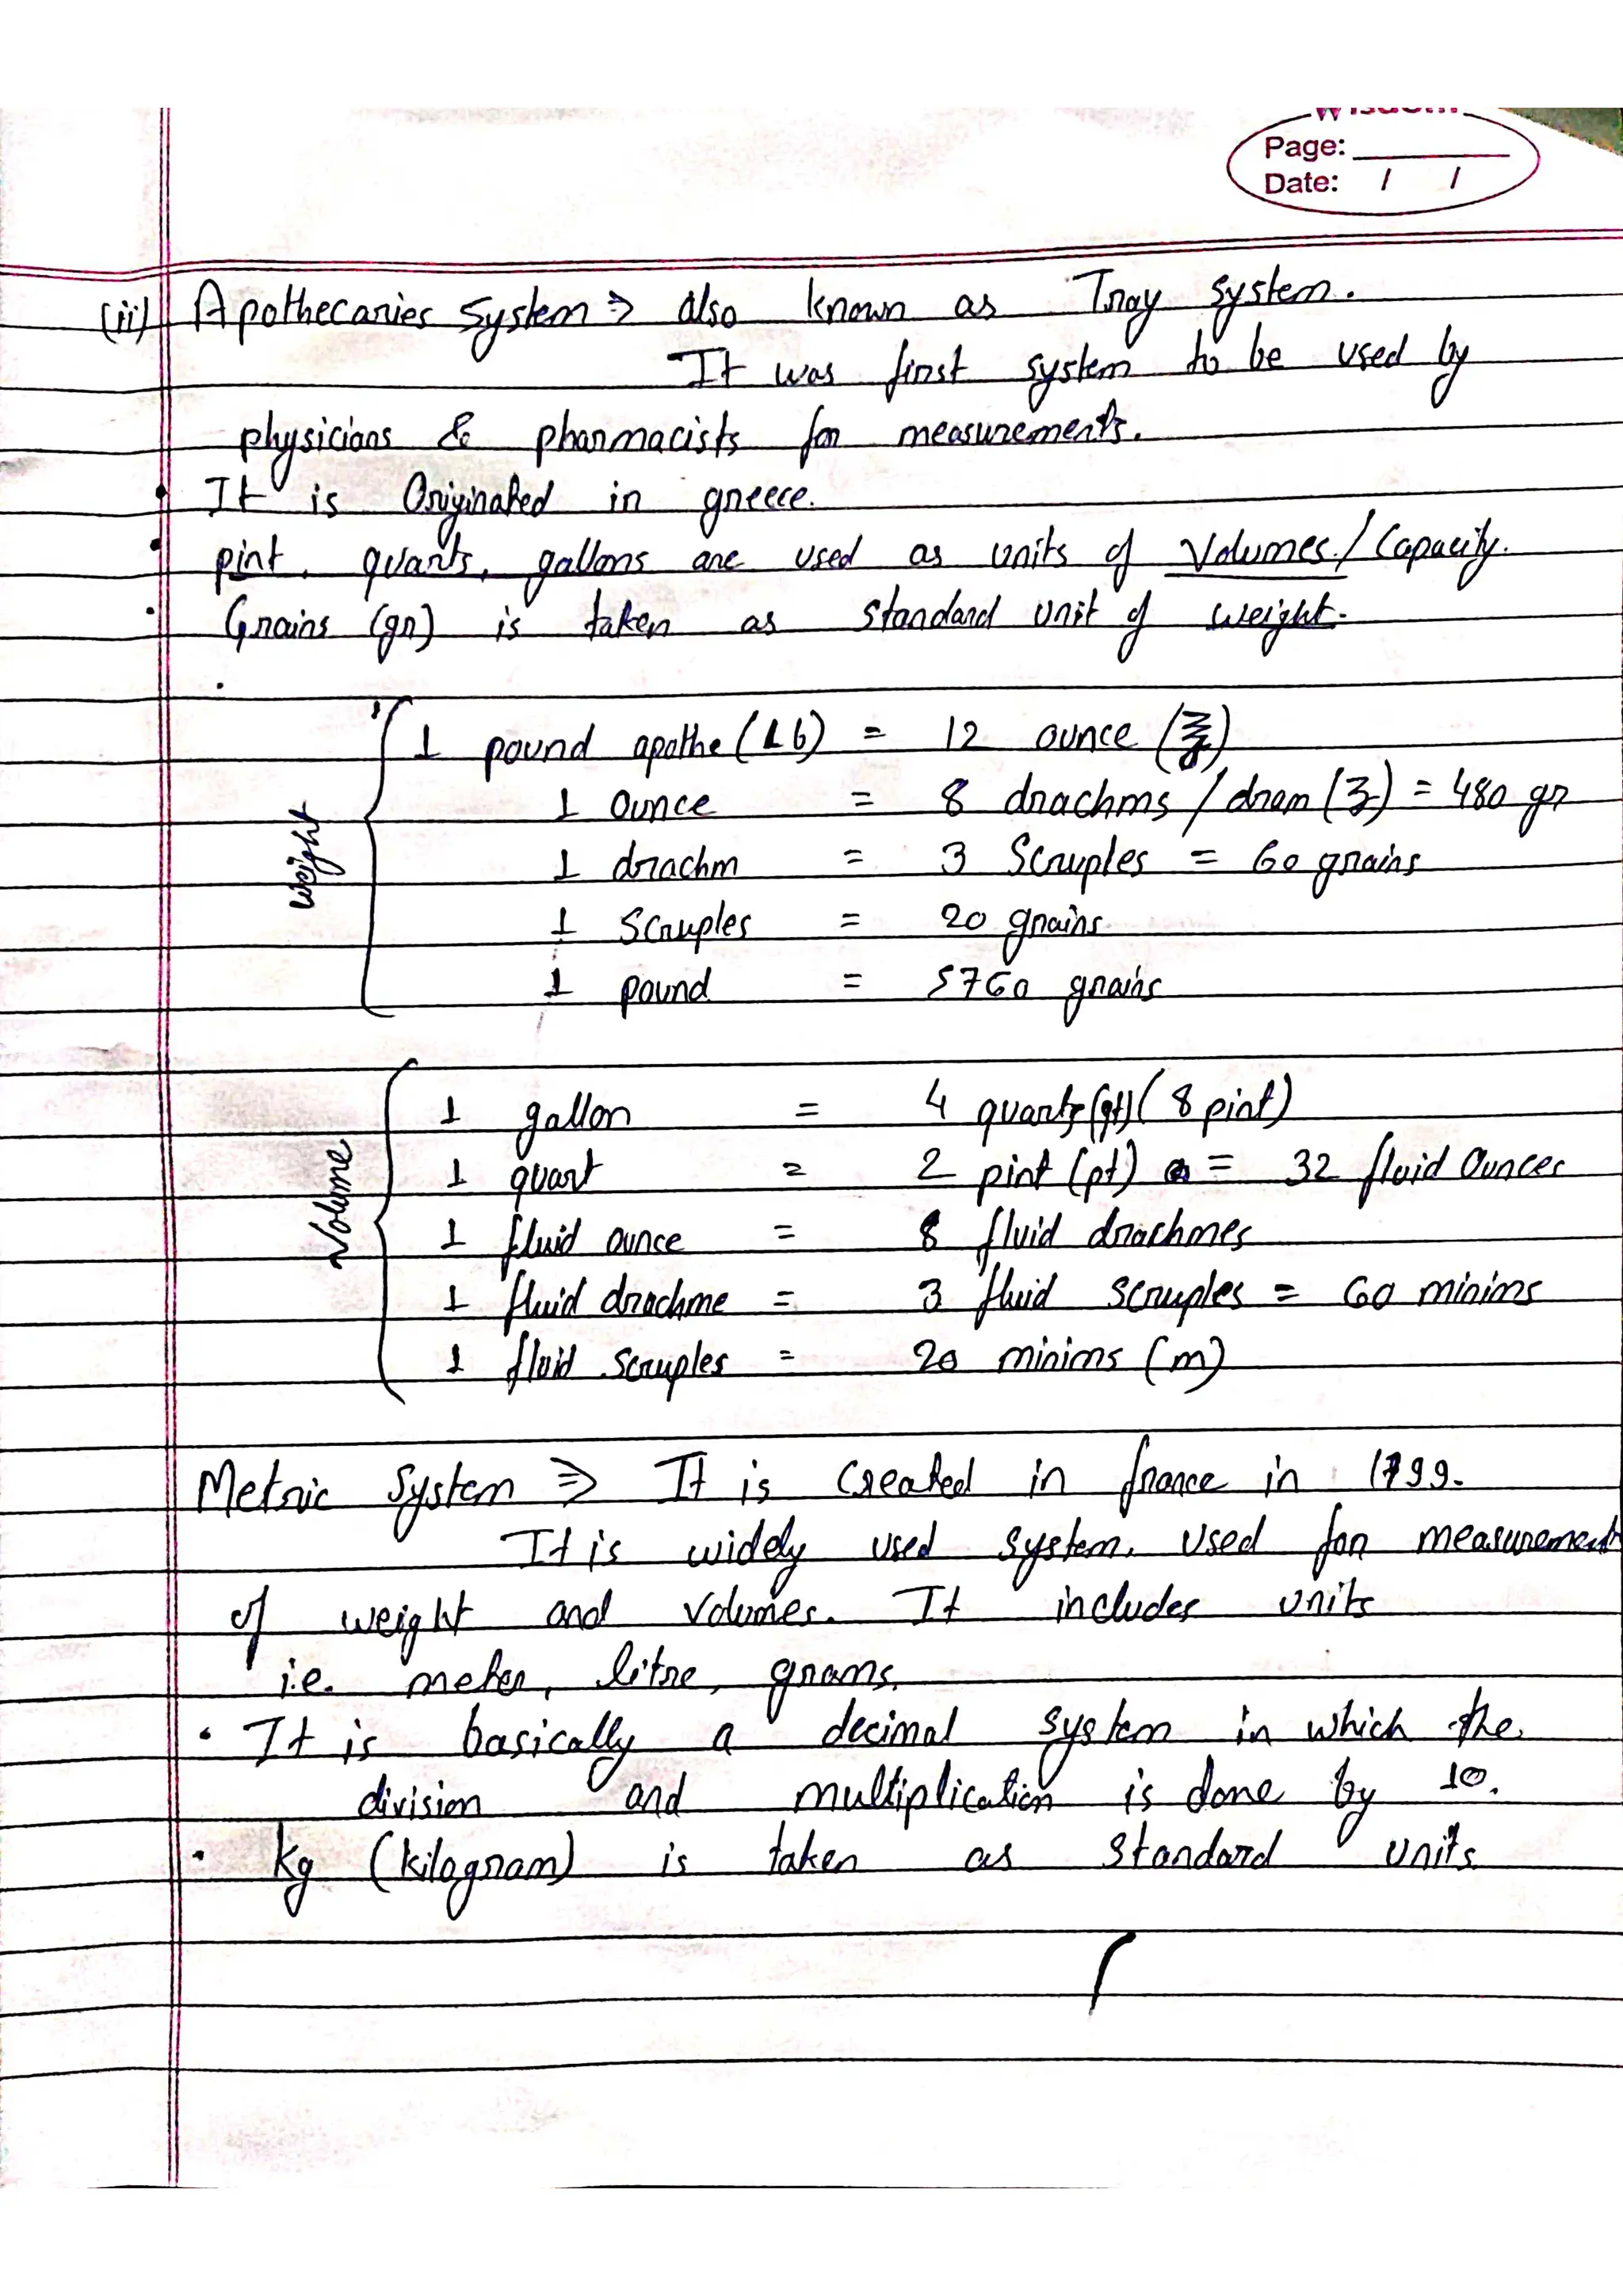 Wisdom
Page:
Date: / /
(ii) Apothecaries System ⇒ also known as Tray system.
It was first system to be used by
physicians & pharmacists for measurements.
• It is Originated in greece.
• pint, quarts, gallons are used as units of Volumes/Capacity.
• Grains (gr) is taken as standard unit of weight.
Weight
1 pound apothe (lb) = 12 ounce (℥)
1 ounce = 8 drachms / dram (ʒ) = 480 gr
1 drachm = 3 Scruples = 60 grains
1 Scruples = 20 grains
1 pound = 5760 grains
Volume
1 gallon = 4 quarts (qt) (8 pint)
1 quart = 2 pint (pt) = 32 fluid Ounces
1 fluid ounce = 8 fluid drachmes
1 fluid drachme = 3 fluid scruples = 60 minims
1 fluid scruples = 20 minims (m)
Metric System ⇒ It is created in france in 1799.
It is widely used system. used for measurement
of weight and volumes. It includes units
i.e. meter, litre, grams.
• It is basically a decimal system in which the
division and multiplication is done by 10.
• kg (kilogram) is taken as standard units.